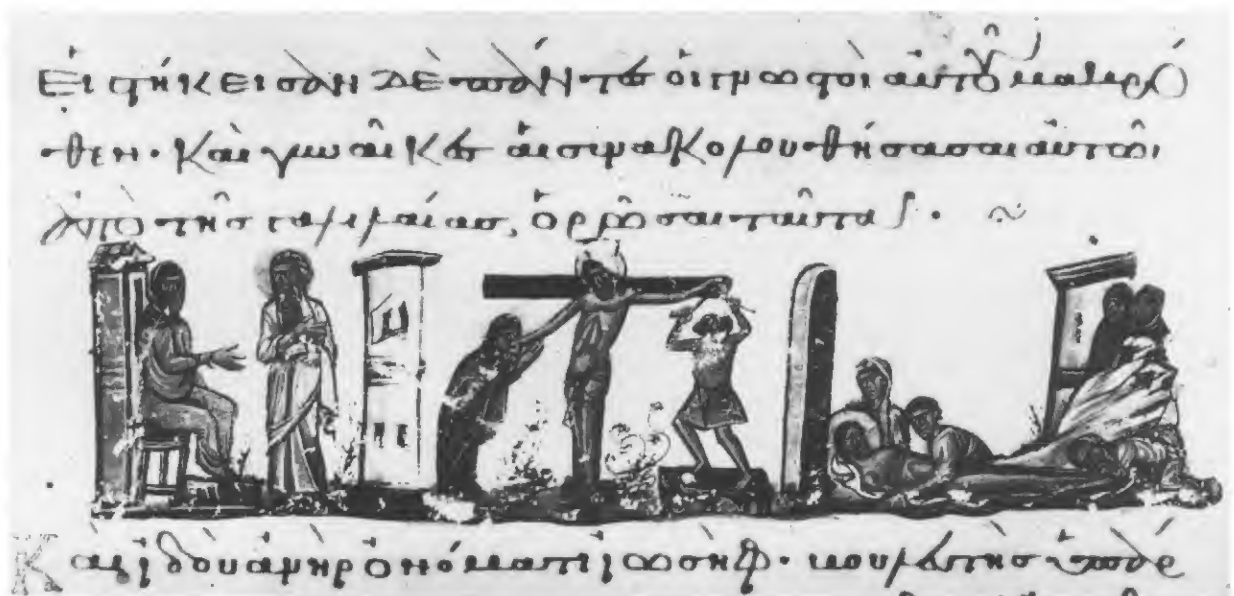 Εἱστήκεισαν δὲ πάντες οἱ γνωστοὶ αὐτοῦ μακρό
θεν· καὶ γυναῖκες αἱ συνακολουθήσασαι αὐτῶι
ἀπὸ τῆς γαλιλαίας, ὁρῶσαι ταῦτα·
Καὶ ἰδοὺ ἀνὴρ ὀνόματι ἰωσὴφ· βουλευτὴς ὑπάρ